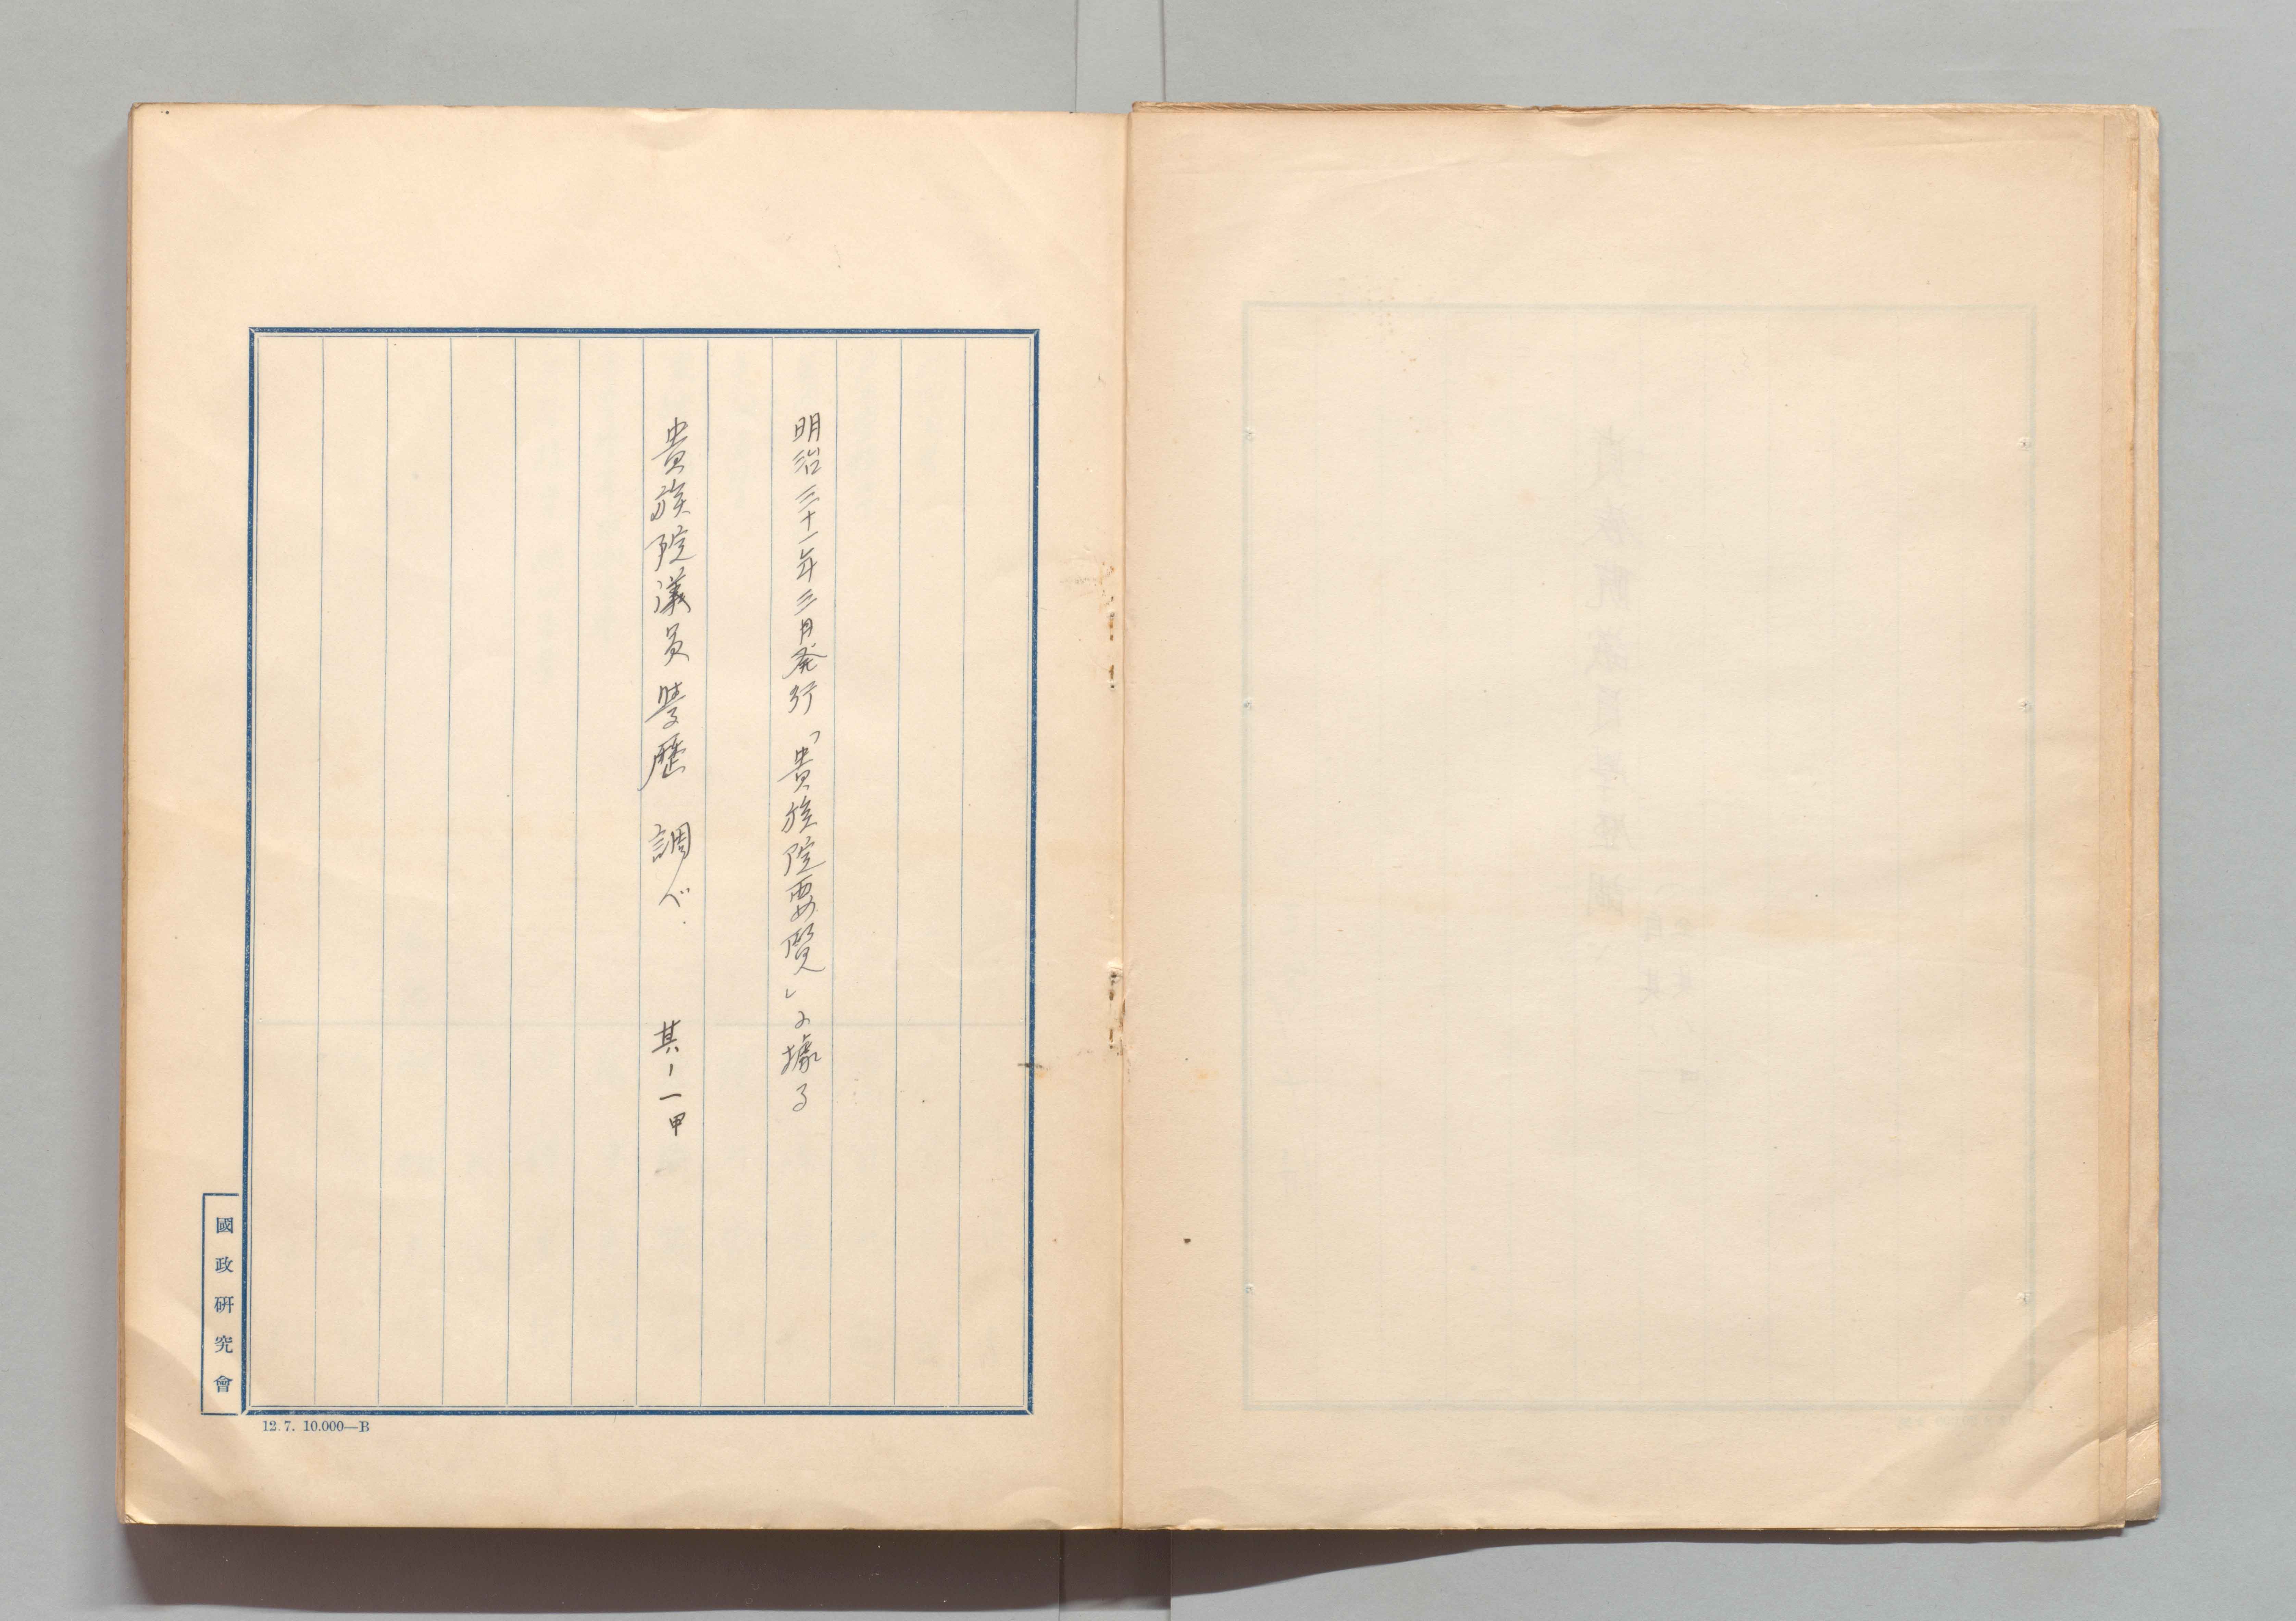 明治三十一年三月発行「貴族院要覽」に據る
貴族院議員學歷 調べ 其ノ一甲
國政研究會
12.7. 10.000—B